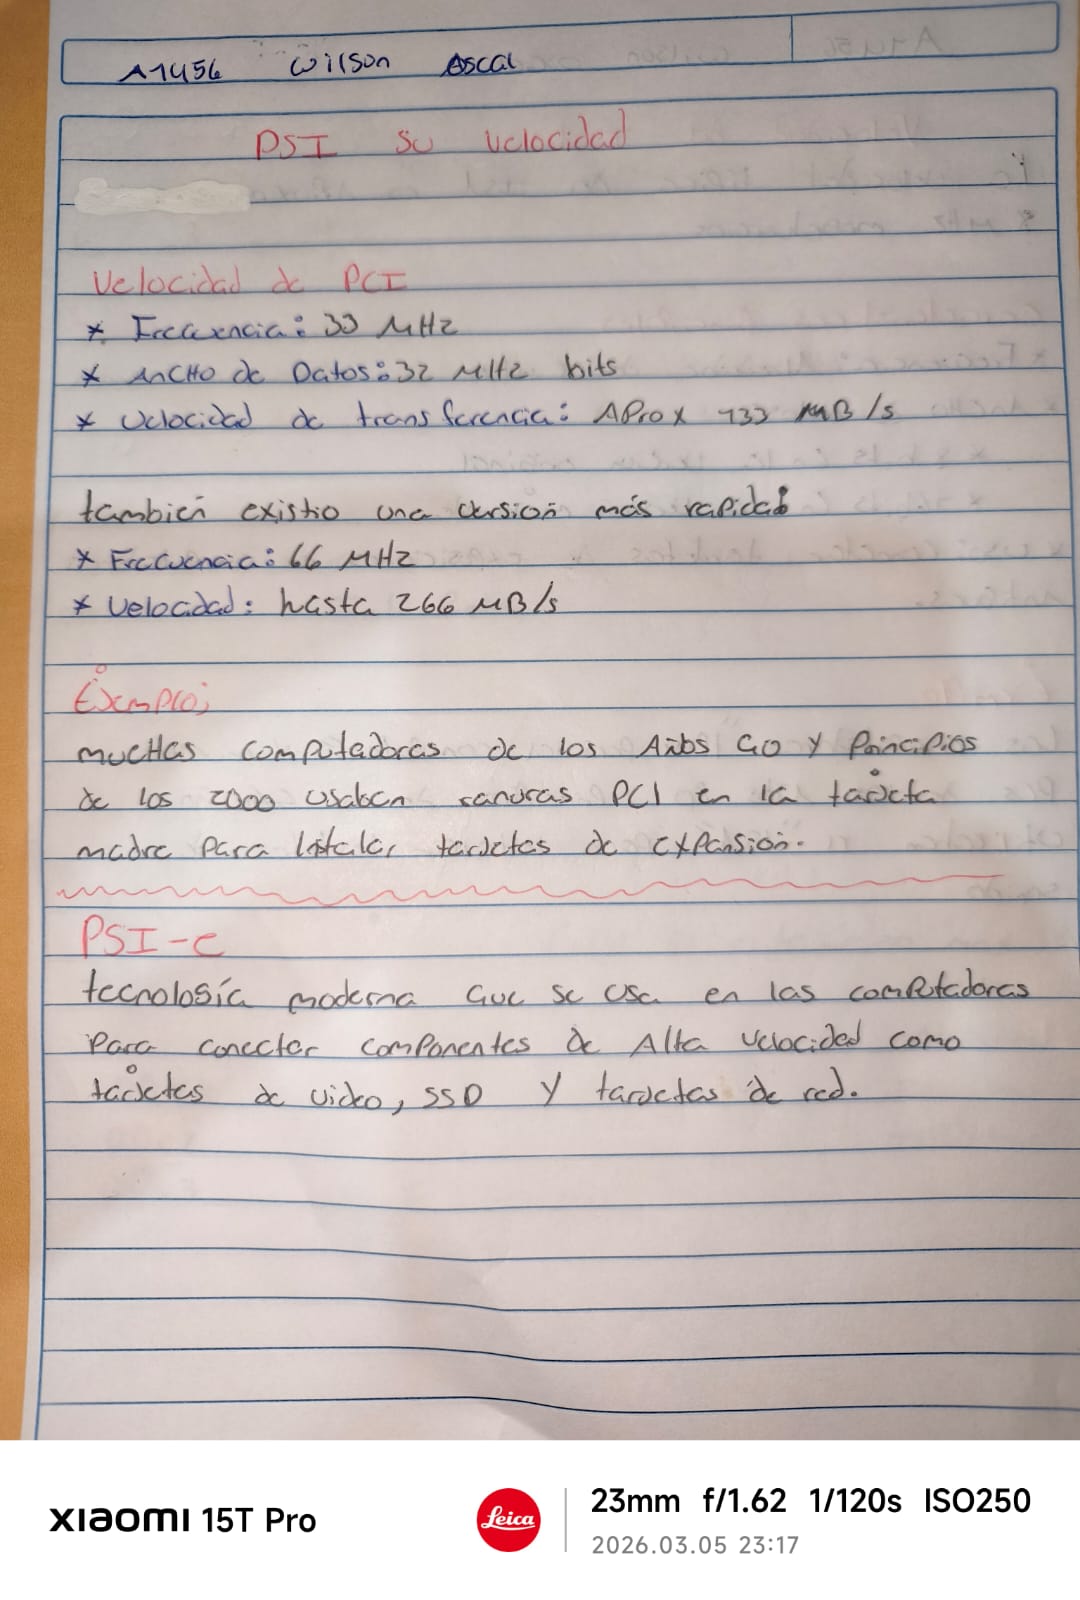 A1456 Wilson Ascal
PSI su velocidad
Velocidad de PCI
* Frecuencia: 33 MHz
* ANCHO de Datos: 32 MHz bits
* Velocidad de transferencia: APROX 133 MB/s
también existio una versión más rapida:
* Frecuencia: 66 MHz
* Velocidad: hasta 266 MB/s
Ejemplo;
mucHas computadoras de los Años 90 y Principios
de los 2000 usaban ranuras PCI en la tarjeta
madre Para tarjetas de expansión.
PSI-e
tecnología moderna que se usa en las computadoras
Para conectar componentes de Alta velocidad como
tarjetas de video, SSD y tarjetas de red.
XIAOMI 15T Pro
Leica
23mm f/1.62 1/120s ISO250
2026.03.05 23:17